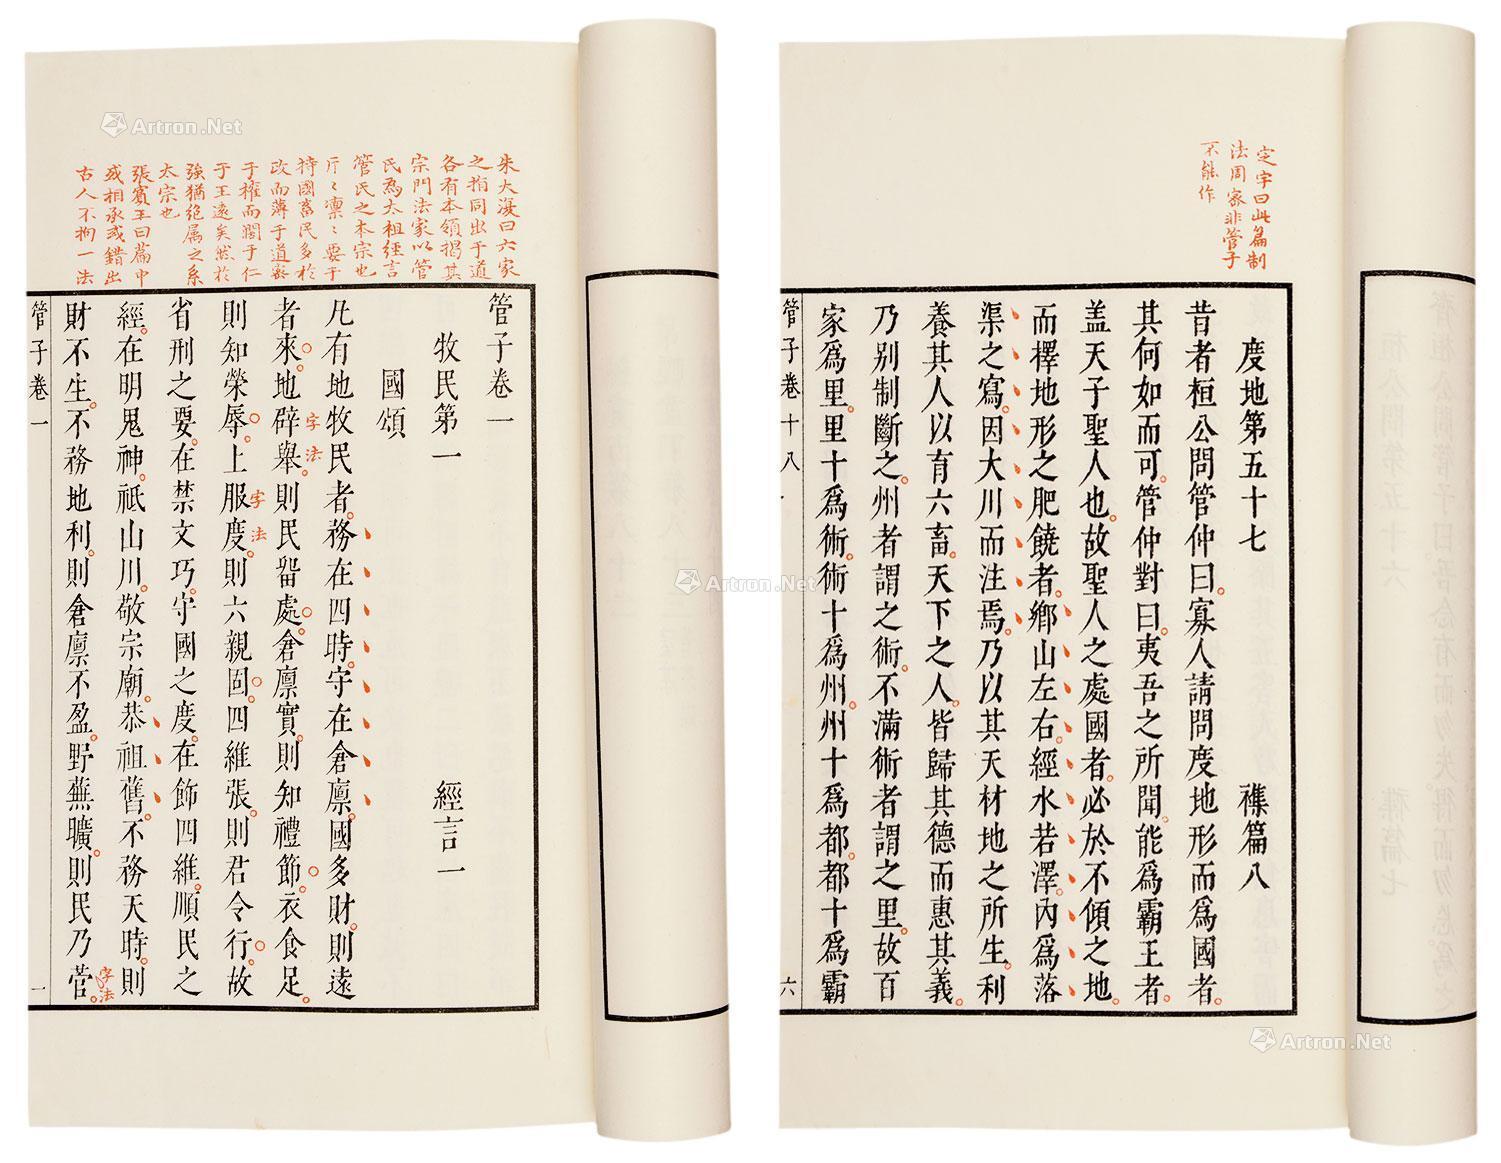 朱大復曰六家
之指同出于道
各有本領揭其
宗門法家以管
民爲太祖經言
管氏之本宗也
斤〻凜〻要于
持國畜民多於
政而薄于道密
于權而闊于仁
于王遠矣然於
強猶絶属之系
太宗也
張賓王曰篇中
或相承或錯出
古人不拘一法
管子卷一
牧民第一 經言一
國頌
凡有地牧民者務在四時守在倉廩國多財則遠
者來地辟舉則民畱處倉廩實則知禮節衣食足
字法
則知榮辱上服度則六親固四維張則君令行故
字法
省刑之要在禁文巧守國之度在飾四維順民之
經在明鬼神祗山川敬宗廟恭祖舊不務天時則
財不生不務地利則倉廩不盈野蕪曠則民乃菅
字法
管子卷一 一
定宇曰此篇制
法周家非管子
不能作
度地第五十七 襍篇八
昔者桓公問管仲曰寡人請問度地形而爲國者
其何如而可管仲對曰夷吾之所聞能爲霸王者
盖天子聖人也故聖人之處國者必於不傾之地
而擇地形之肥饒者鄉山左右經水若澤內爲落
渠之寫因大川而注焉乃以其天材地之所生利
養其人以有六畜天下之人皆歸其德而惠其義
乃别制斷之州者謂之術不滿術者謂之里故百
家爲里里十爲術術十爲州州十爲都都十爲霸
管子卷十八 六
Artron.Net
Artron.Net
Artron.Net
Artron.Net